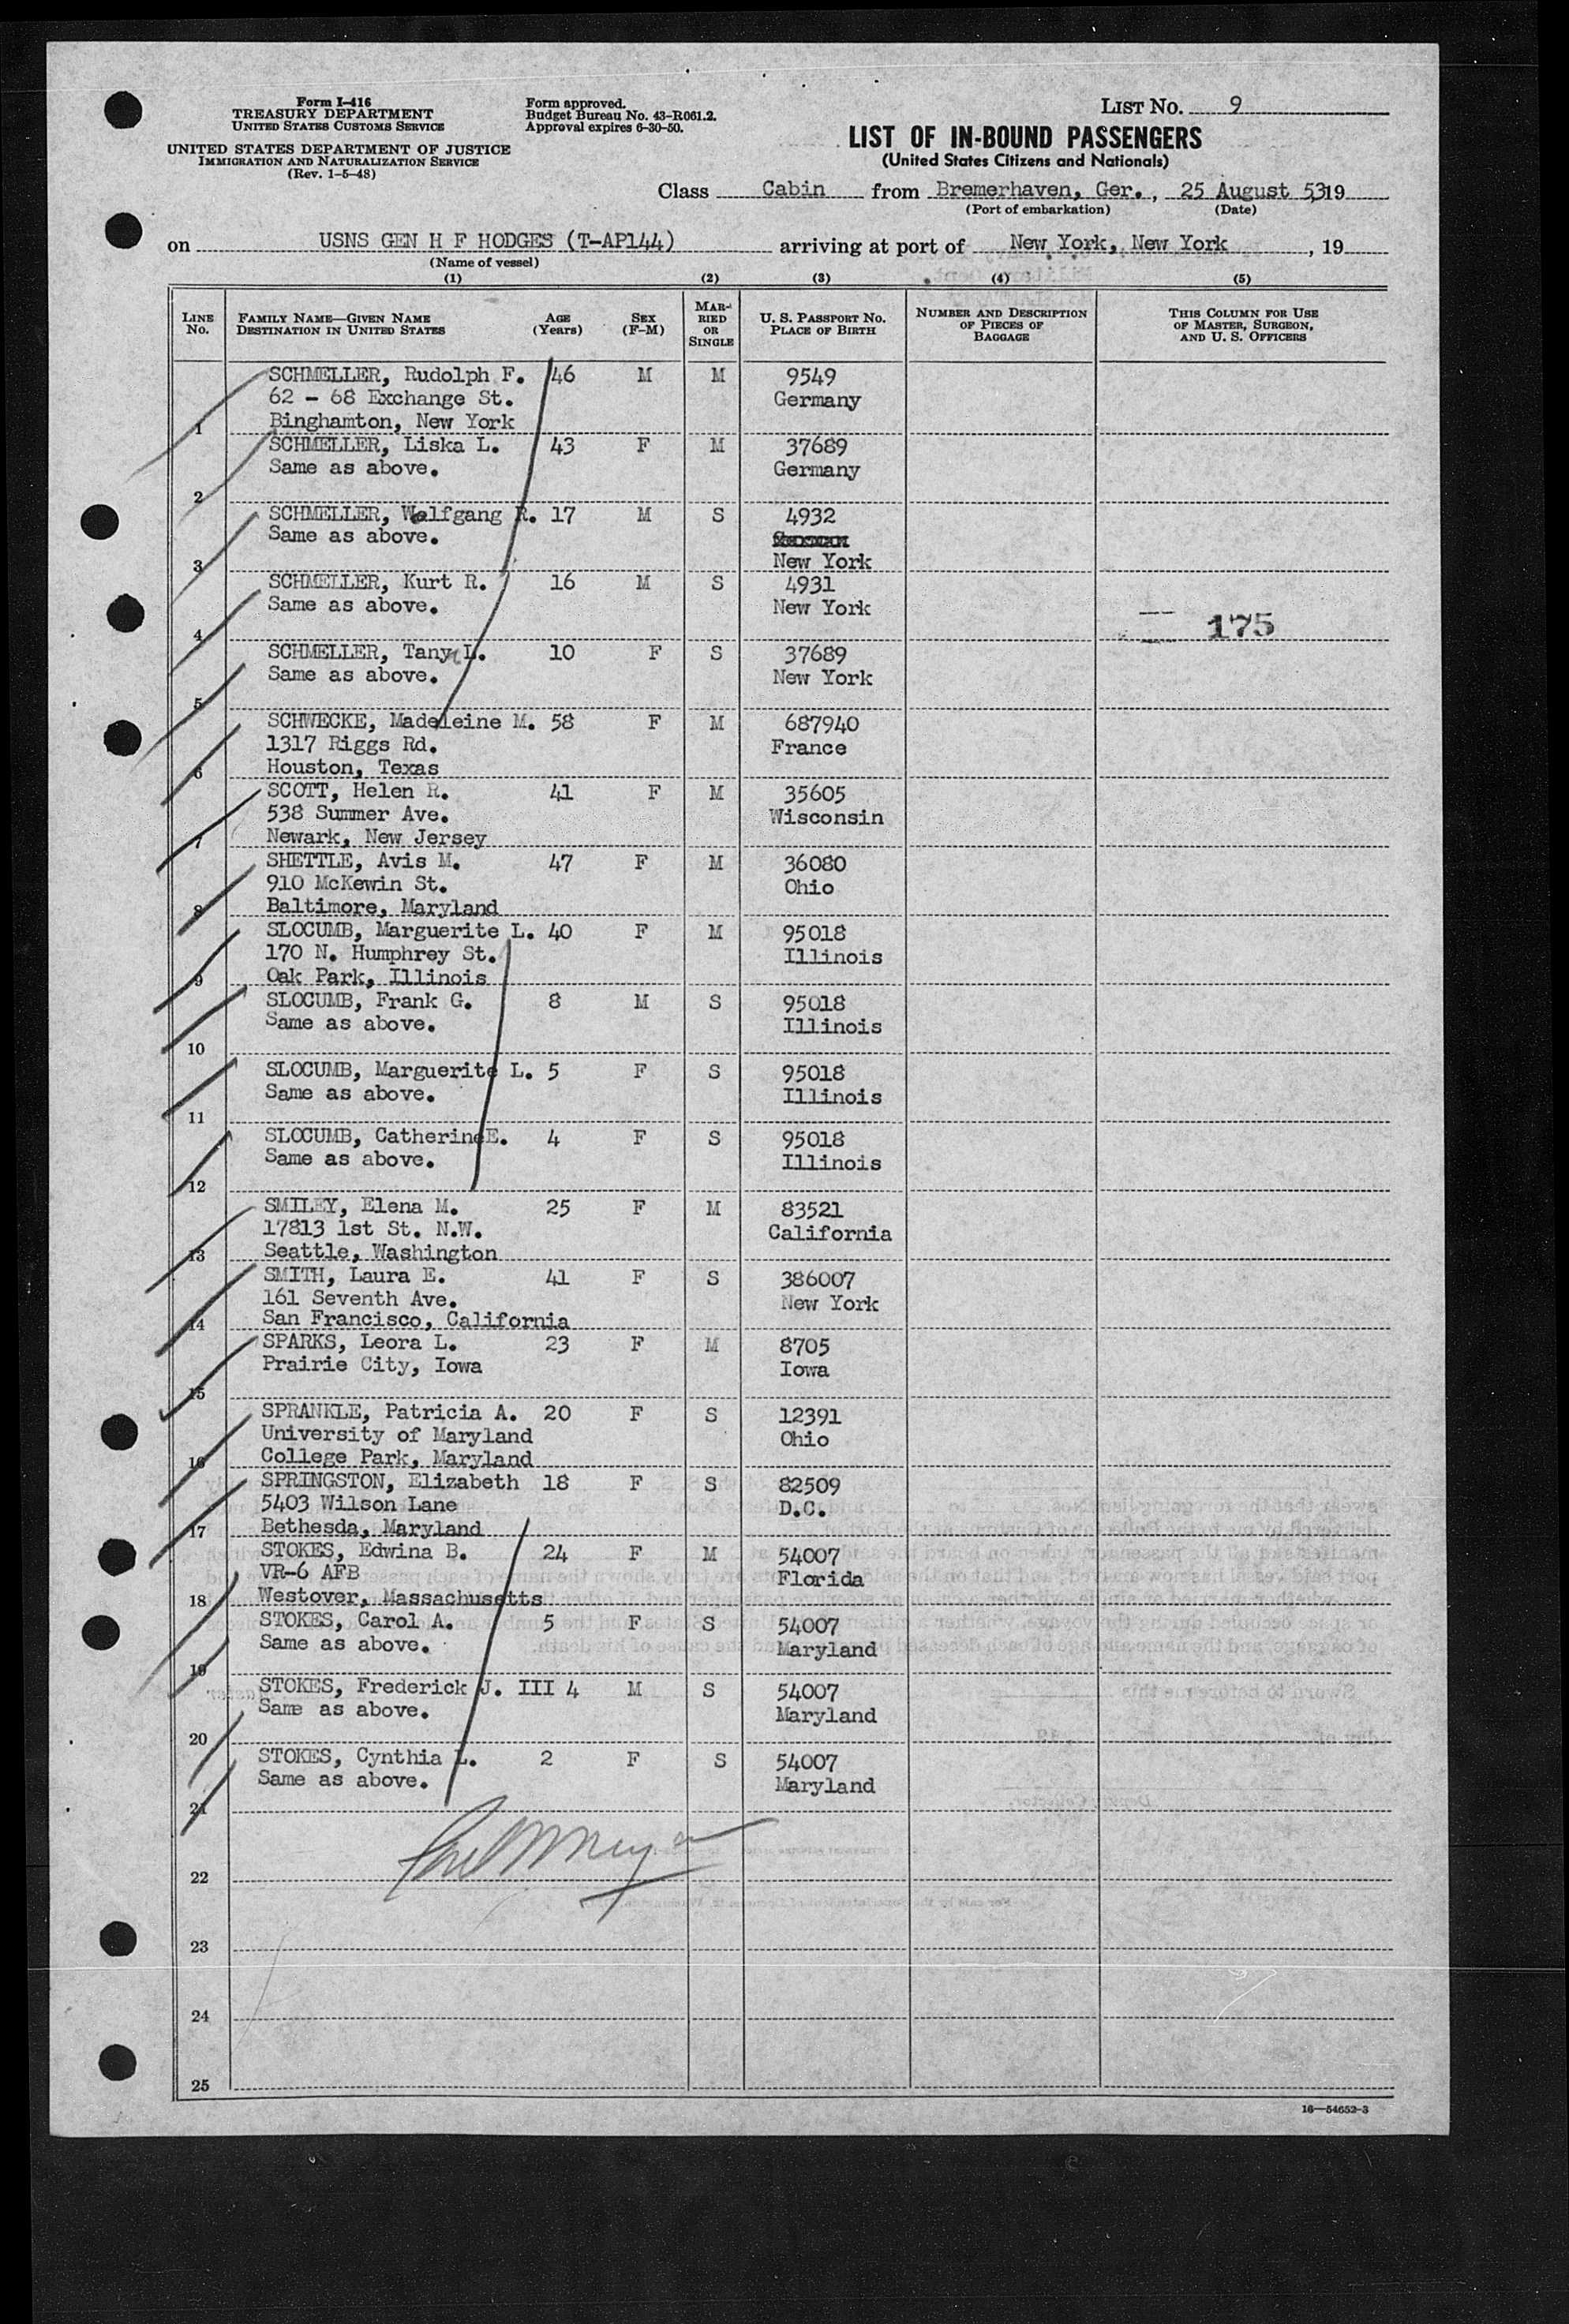 Form I-416
TREASURY DEPARTMENT
UNITED STATES CUSTOMS SERVICE
UNITED STATES DEPARTMENT OF JUSTICE
IMMIGRATION AND NATURALIZATION SERVICE
(Rev. 1-5-48)
Form approved.
Budget Bureau No. 43-R061.2.
Approval expires 6-30-50.
LIST NO. 9
LIST OF IN-BOUND PASSENGERS
(United States Citizens and Nationals)
Class Cabin from Bremerhaven, Ger., 25 August 53 19
(Port of embarkation) (Date)
on USNS GEN H F HODGES (T-AP144) arriving at port of New York, New York, 19
(Name of vessel)
(1) (2) (3) (4) (5)
LINE No. FAMILY NAME—GIVEN NAME DESTINATION IN UNITED STATES AGE (Years) SEX (F-M) MARRIED OR SINGLE U. S. PASSPORT NO. PLACE OF BIRTH NUMBER AND DESCRIPTION OF PIECES OF BAGGAGE THIS COLUMN FOR USE OF MASTER, SURGEON, AND U. S. OFFICERS
SCHMELLER, Rudolph F. 46 M M 9549
62 - 68 Exchange St. Germany
1 Binghamton, New York
SCHMELLER, Liska L. 43 F M 37689
Same as above. Germany
2
SCHMELLER, Wolfgang R. 17 M S 4932
Same as above.
3 New York
SCHMELLER, Kurt R. 16 M S 4931
Same as above. New York
4 175
SCHMELLER, Tany L. 10 F S 37689
Same as above. New York
5
SCHWECKE, Madeleine M. 58 F M 687940
1317 Riggs Rd. France
6 Houston, Texas
SCOTT, Helen R. 41 F M 35605
538 Summer Ave. Wisconsin
7 Newark, New Jersey
SHETTLE, Avis M. 47 F M 36080
910 McKewin St. Ohio
8 Baltimore, Maryland
SLOCUMB, Marguerite L. 40 F M 95018
170 N. Humphrey St. Illinois
9 Oak Park, Illinois
SLOCUMB, Frank G. 8 M S 95018
Same as above. Illinois
10
SLOCUMB, Marguerite L. 5 F S 95018
Same as above. Illinois
11
SLOCUMB, Catherine E. 4 F S 95018
Same as above. Illinois
12
SMILEY, Elena M. 25 F M 83521
17813 1st St. N.W. California
13 Seattle, Washington
SMITH, Laura E. 41 F S 386007
161 Seventh Ave. New York
14 San Francisco, California
SPARKS, Leora L. 23 F M 8705
Prairie City, Iowa Iowa
15
SPRANKLE, Patricia A. 20 F S 12391
University of Maryland Ohio
16 College Park, Maryland
SPRINGSTON, Elizabeth 18 F S 82509
5403 Wilson Lane D.C.
17 Bethesda, Maryland
STOKES, Edwina B. 24 F M 54007
VR-6 AFB Florida
18 Westover, Massachusetts
STOKES, Carol A. 5 F S 54007
Same as above. Maryland
19
STOKES, Frederick J. III 4 M S 54007
Same as above. Maryland
20
STOKES, Cynthia L. 2 F S 54007
Same as above. Maryland
21
22
23
24
25
16—54652-3